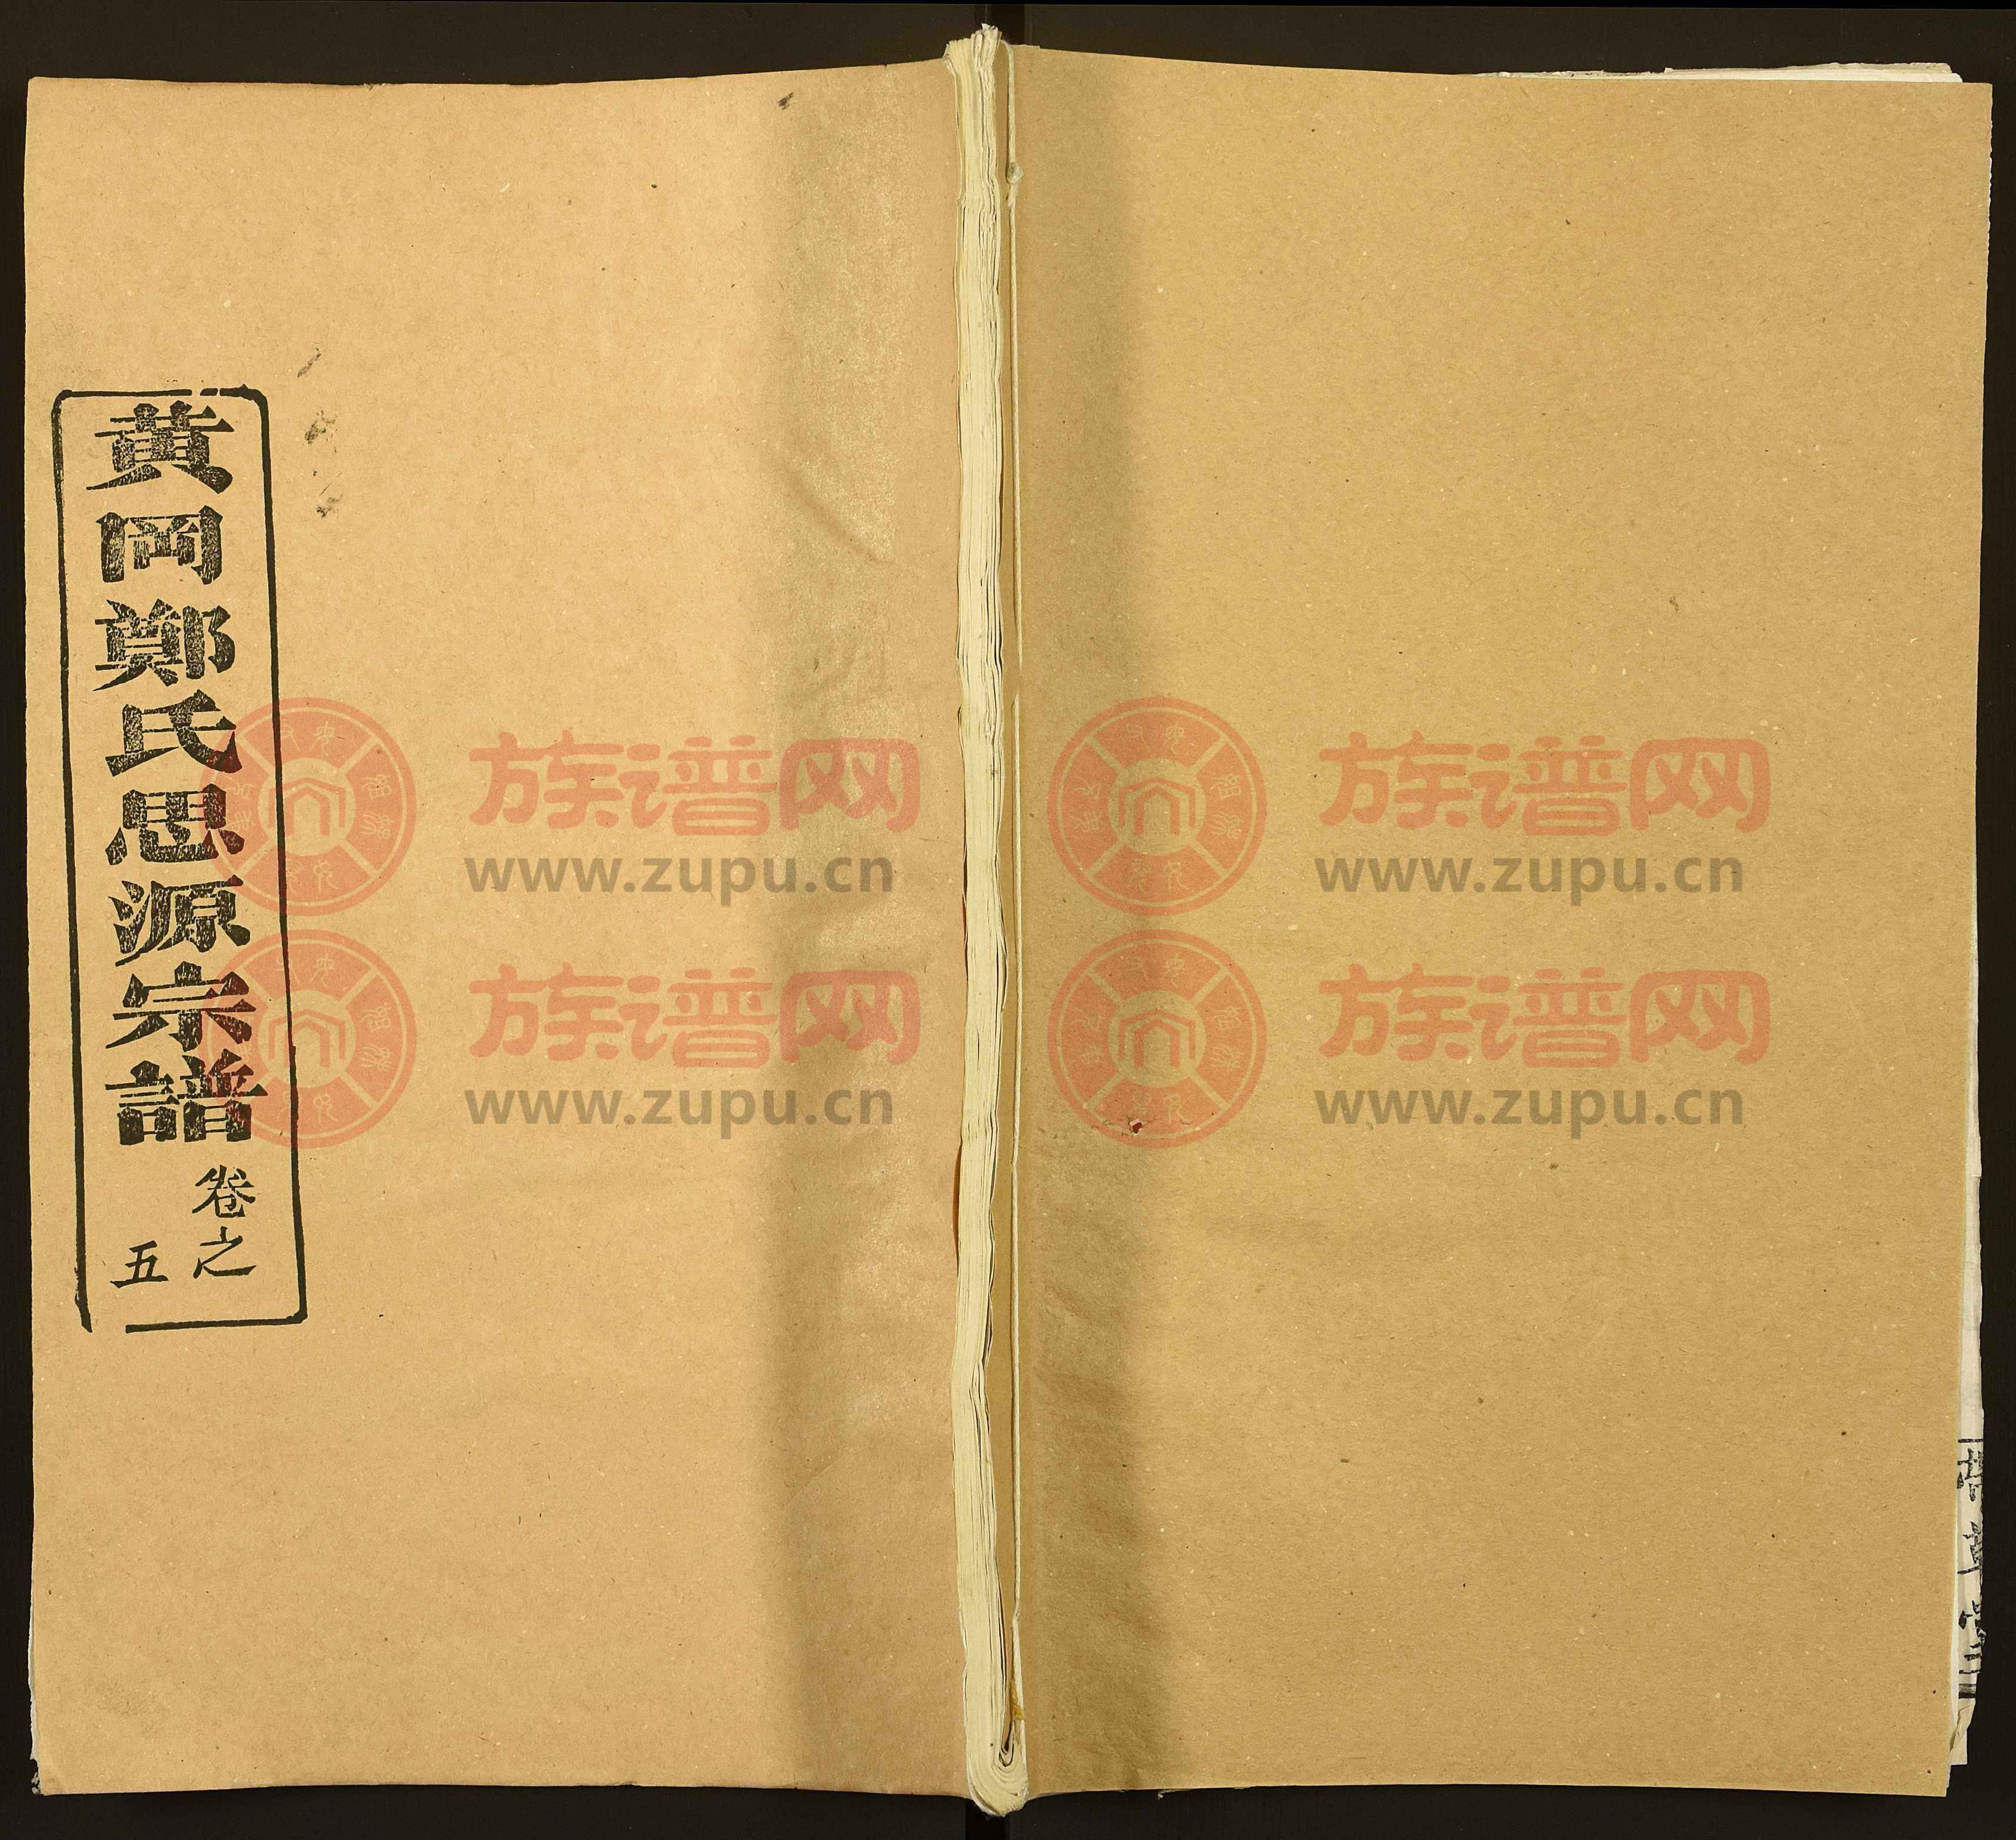 黃岡鄭氏思源宗譜
卷之
五
族谱网
www.zupu.cn
族谱网
www.zupu.cn
族谱网
www.zupu.cn
族谱网
www.zupu.cn